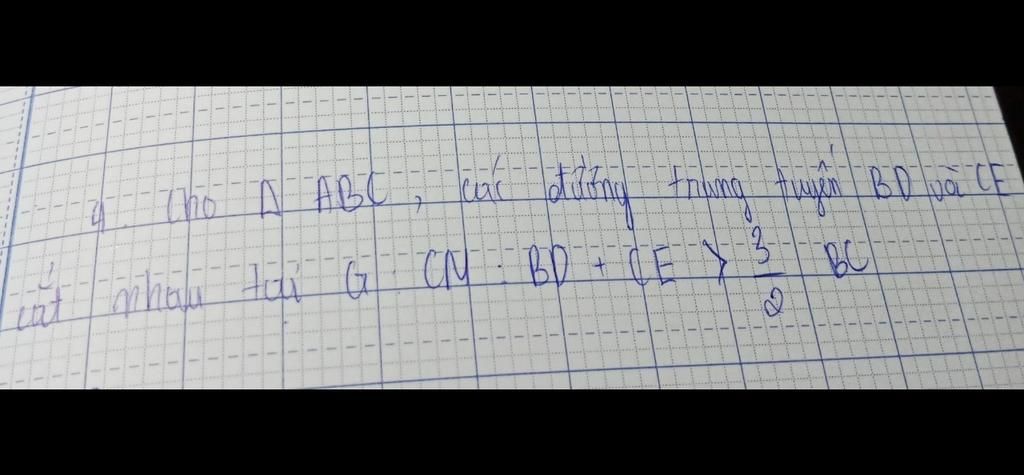 4. Cho Δ ABC, các đường trung tuyến BD và CE
cắt nhau tại G. CM: BD + CE > 3/2 BC